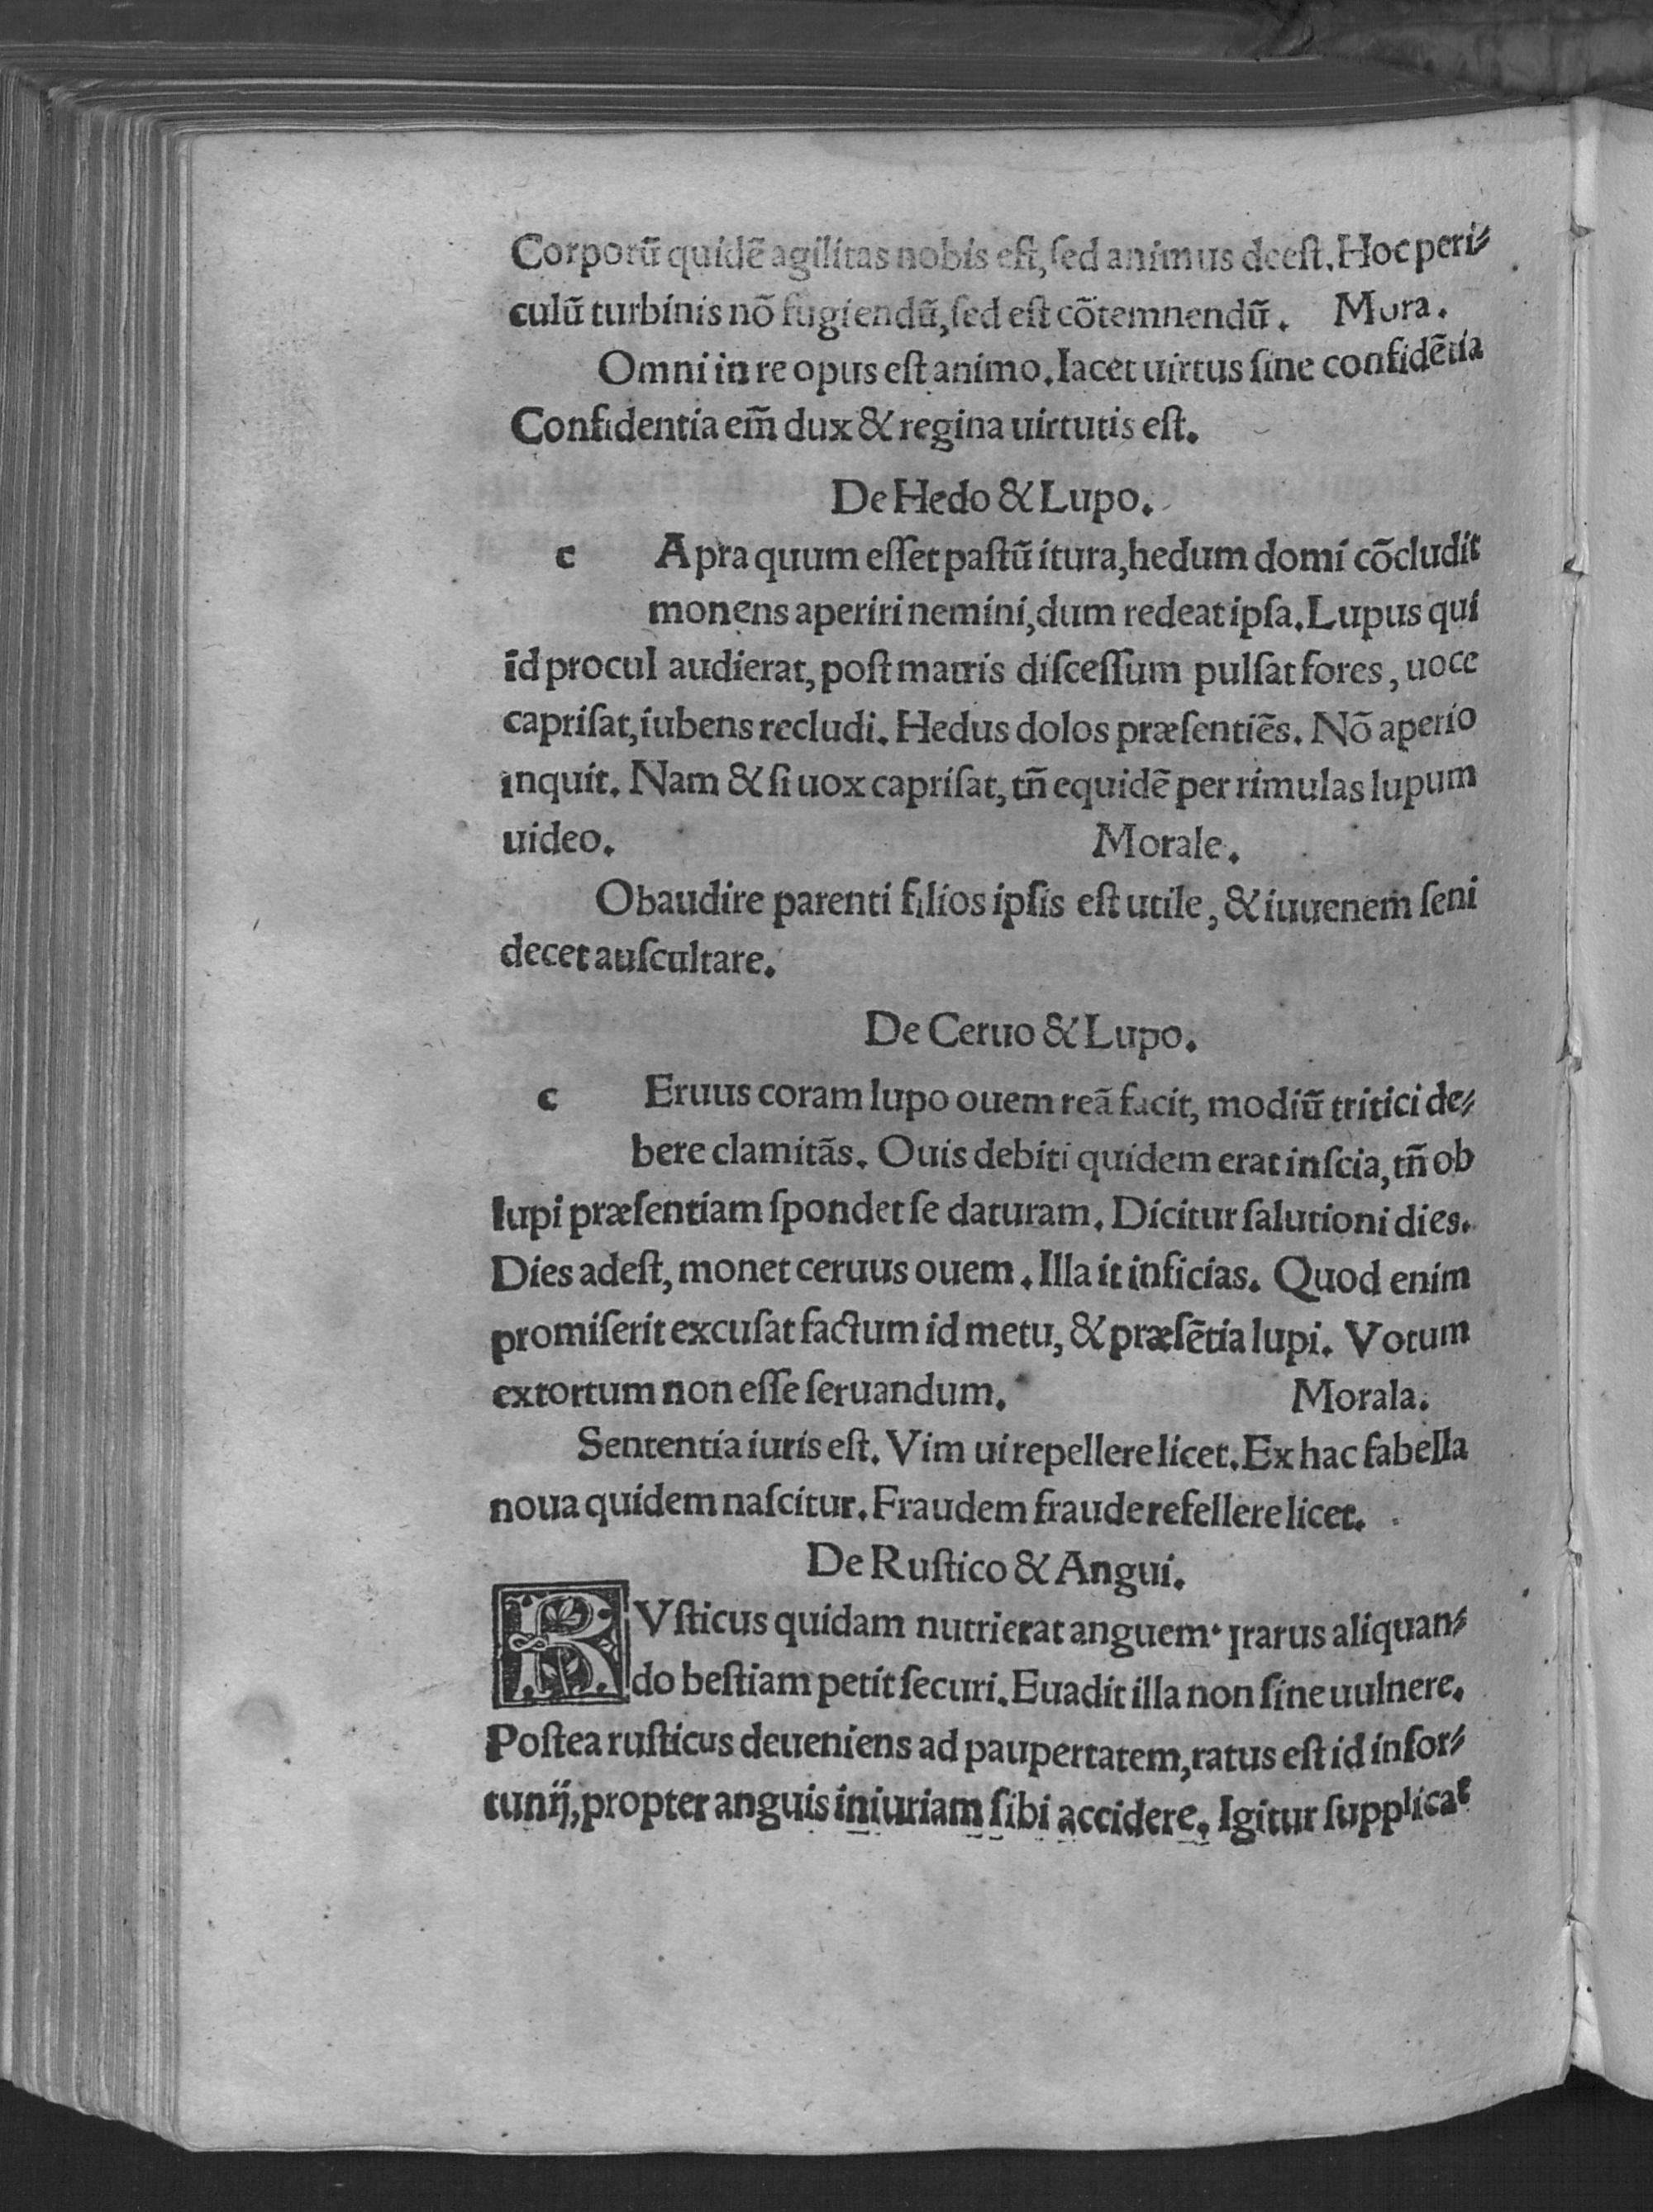 Corporũ quidẽ agilitas nobis eſt, ſed animus deeſt. Hoc peri⸗
culũ turbinis nõ fugiendũ, ſed eſt cõtemnendũ. Mora.
Omni in re opus eſt animo. Iacet uirtus ſine confidẽtia
Confidentia em̃ dux & regina uirtutis eſt.
De Hedo & Lupo.
c Apra quum eſſet paſtũ itura, hedum domi cõcludit
monens aperiri nemini, dum redeat ipſa. Lupus qui
id procul audierat, poſt matris diſceſſum pulſat fores, uoce
capriſat, iubens recludi. Hedus dolos præſentiẽs. Nõ aperio
inquit. Nam & ſi uox capriſat, tñ equidẽ per rimulas lupum
uideo. Morale.
Obaudire parenti filios ipſis eſt utile, & iuuenem ſeni
decet auſcultare.
De Ceruo & Lupo.
c Eruus coram lupo ouem reã facit, modiũ tritici de⸗
bere clamitãs. Ouis debiti quidem erat inſcia, tñ ob
lupi præſentiam ſpondet ſe daturam. Dicitur ſalutioni dies.
Dies adeſt, monet ceruus ouem. Illa it inficias. Quod enim
promiſerit excuſat factum id metu, & præſẽtia lupi. Votum
extortum non eſſe ſeruandum. Morala.
Sententia iuris eſt. Vim ui repellere licet. Ex hac fabella
noua quidem naſcitur. Fraudem fraude refellere licet.
De Ruſtico & Angui.
RVſticus quidam nutrierat anguem. Iratus aliquan⸗
do beſtiam petit ſecuri. Euadit illa non ſine uulnere.
Poſtea ruſticus deueniens ad paupertatem, ratus eſt id infor⸗
tunij, propter anguis iniuriam ſibi accidere. Igitur ſupplicat